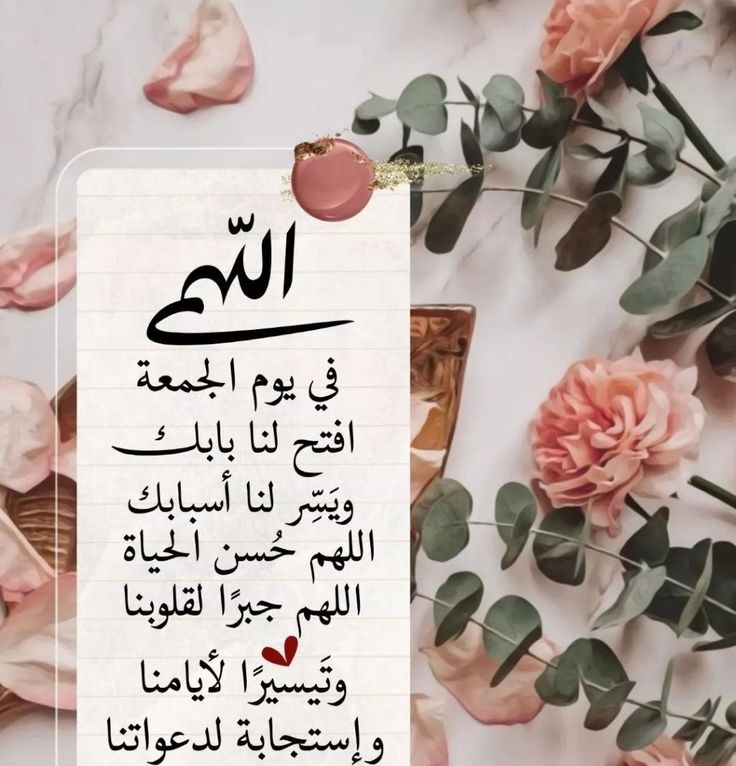 اللهم
في يوم الجمعة
افتح لنا بابك
ويَسِّر لنا أسبابك
اللهم حُسن الحياة
اللهم جبرًا لقلوبنا
وتَيسيرًا لأيامنا
وإستجابة لدعواتنا